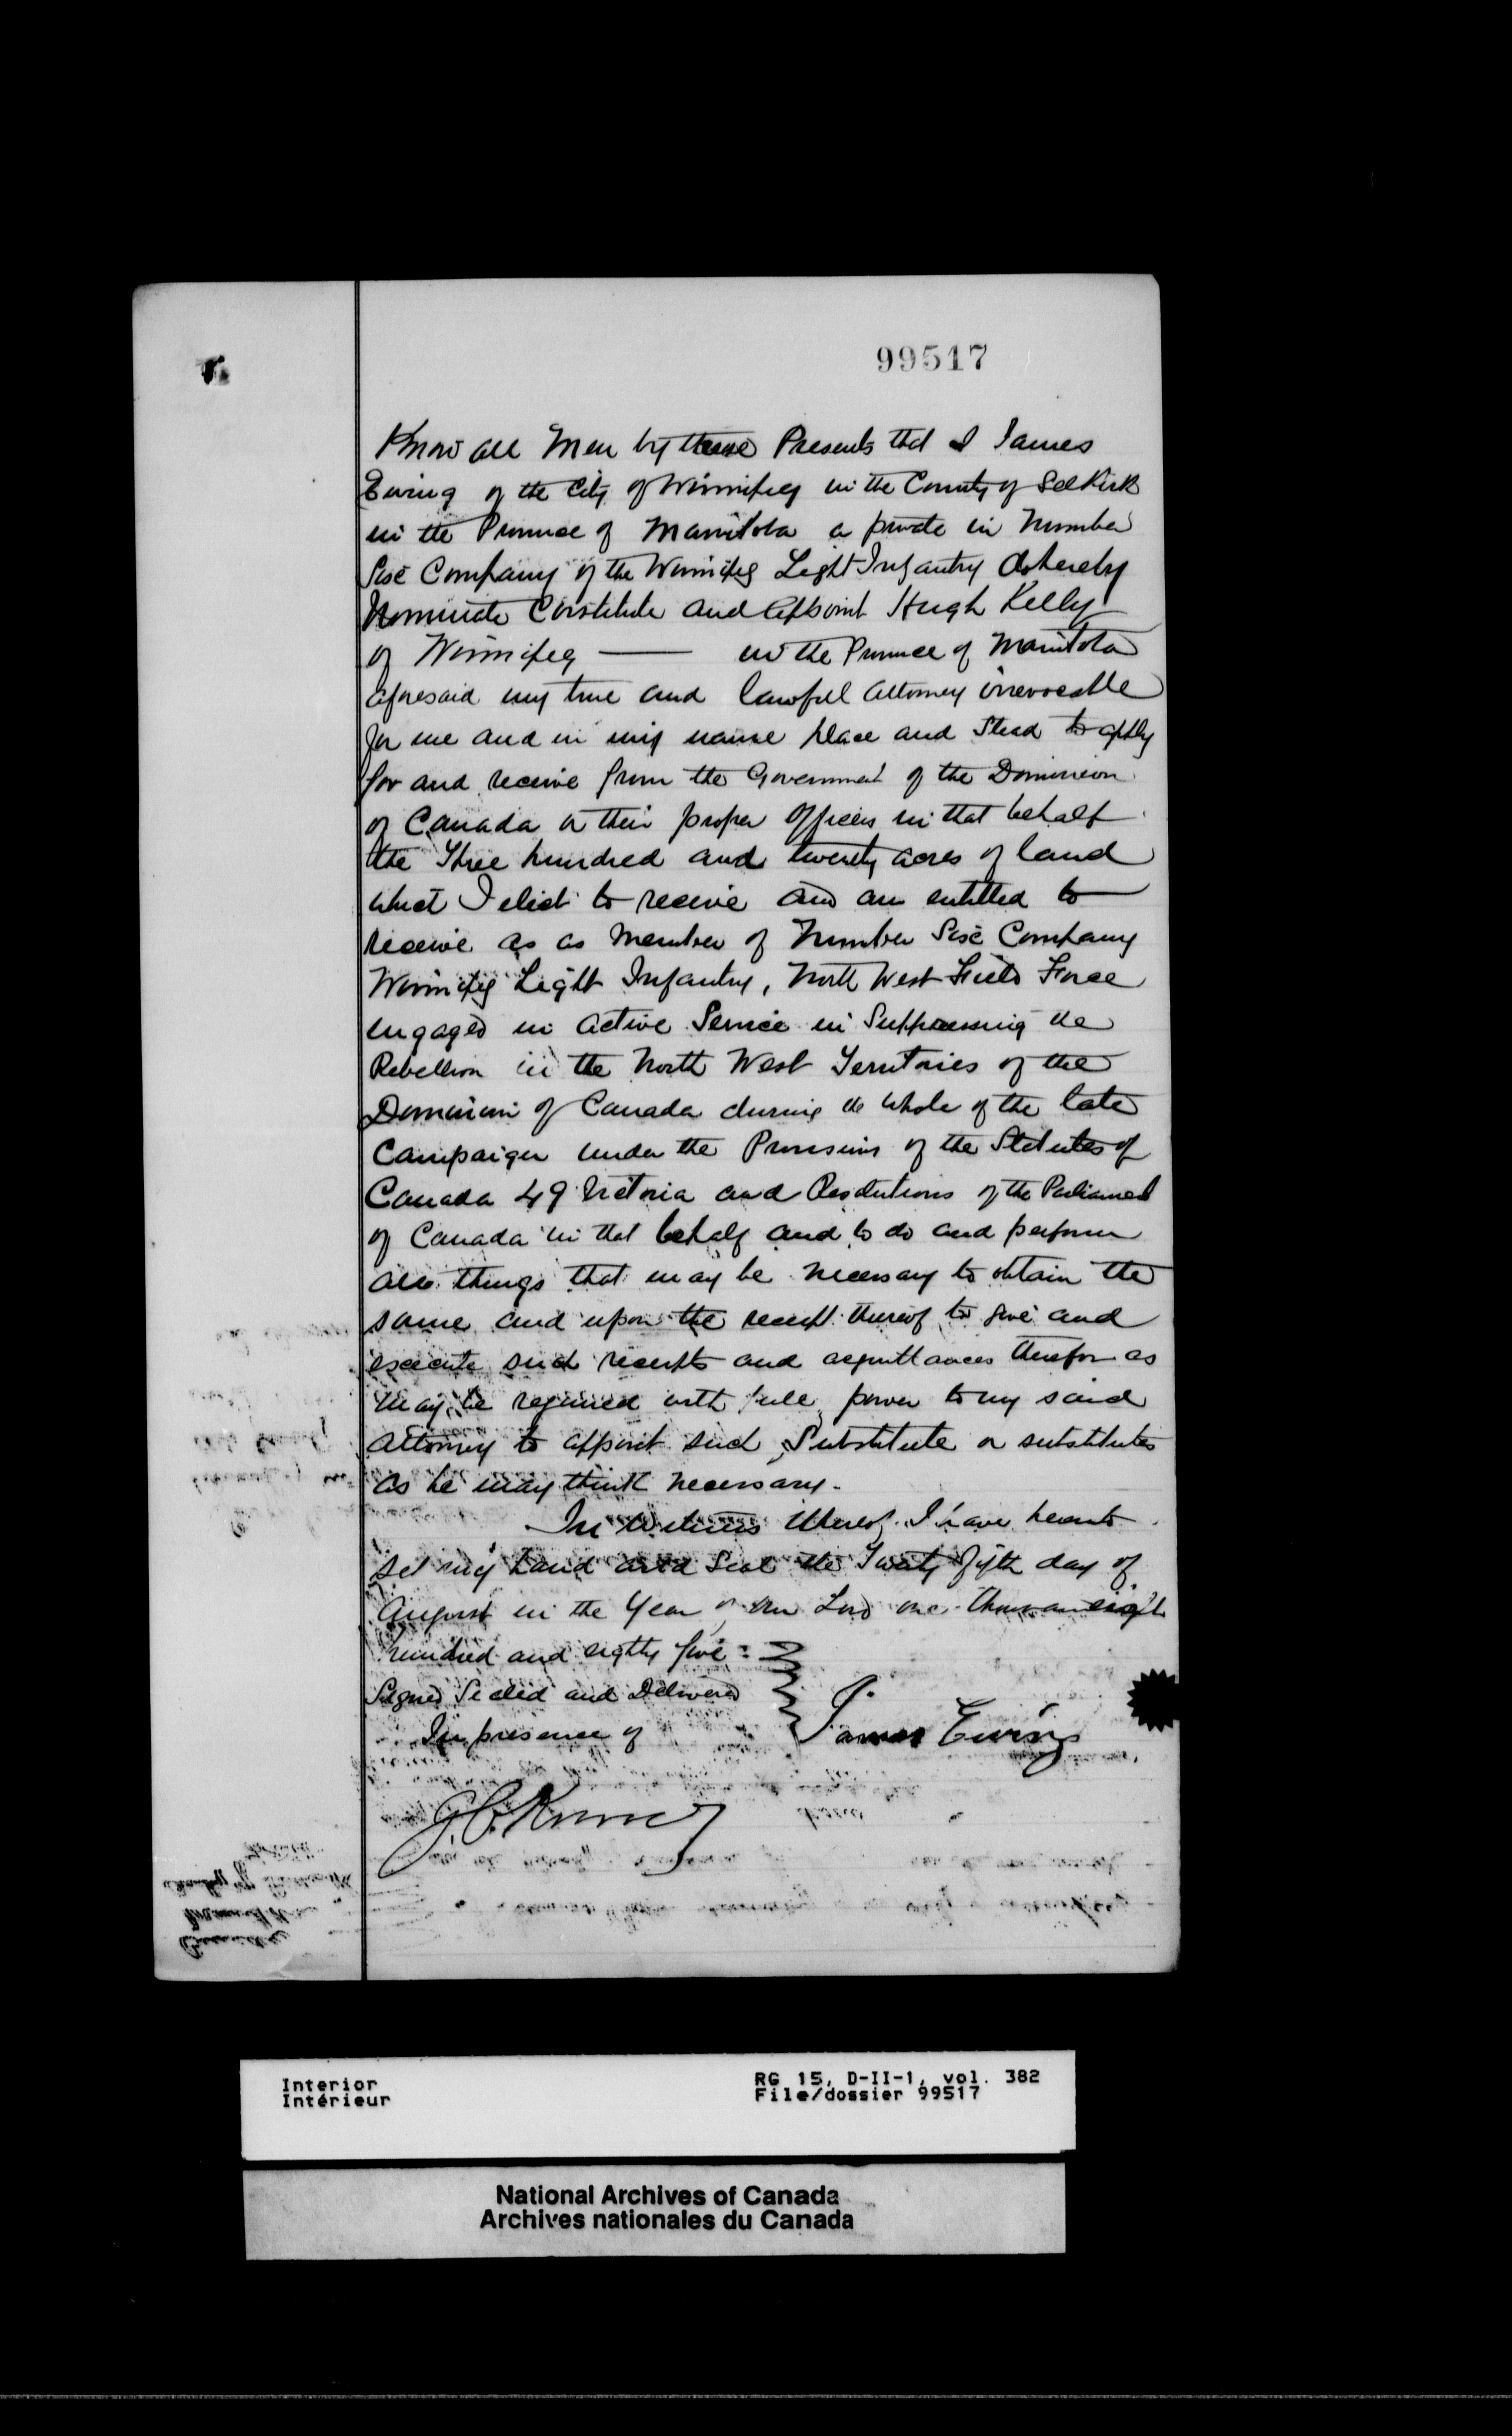 99517
Know all Men by these Presents that I James
Ewing of the City of Winnipeg in the County of Selkirk
in the Province of Manitoba a private in Number
Six Company of the Winnipeg Light Infantry do hereby
Nominate Constitute and Appoint Hugh Kelly
of Winnipeg —— in the Province of Manitoba
aforesaid my true and lawful Attorney irrevocable
for me and in my name place and Stead to apply
for and receive from the Government of the Dominion
of Canada or their proper Officers in that behalf
the Three hundred and twenty acres of land
which I elect to receive and am entitled to
receive as as Member of Number Six Company
Winnipeg Light Infantry, North West Field Force
engaged in active Service in Suppressing the
Rebellion in the North West Territories of the
Dominion of Canada during the whole of the late
Campaign under the Provisions of the Statutes of
Canada 49 Victoria and Resolutions of the Parliament
of Canada in that behalf and to do and perform
all things that may be necessary to obtain the
same and upon the receipt thereof to give and
execute such receipts and acquittances therefor as
may be required with full power to my said
Attorney to appoint such Substitute or substitutes
as he may think necessary.
In Witness Whereof I have hereunto
set my hand and Seal the Twenty fifth day of
August in the Year of our Lord one thousand eight
hundred and eighty five
Signed Sealed and Delivered
In presence of
James Ewing
Interior
Intérieur
RG 15, D-II-1, vol. 382
File/dossier 99517
National Archives of Canada
Archives nationales du Canada